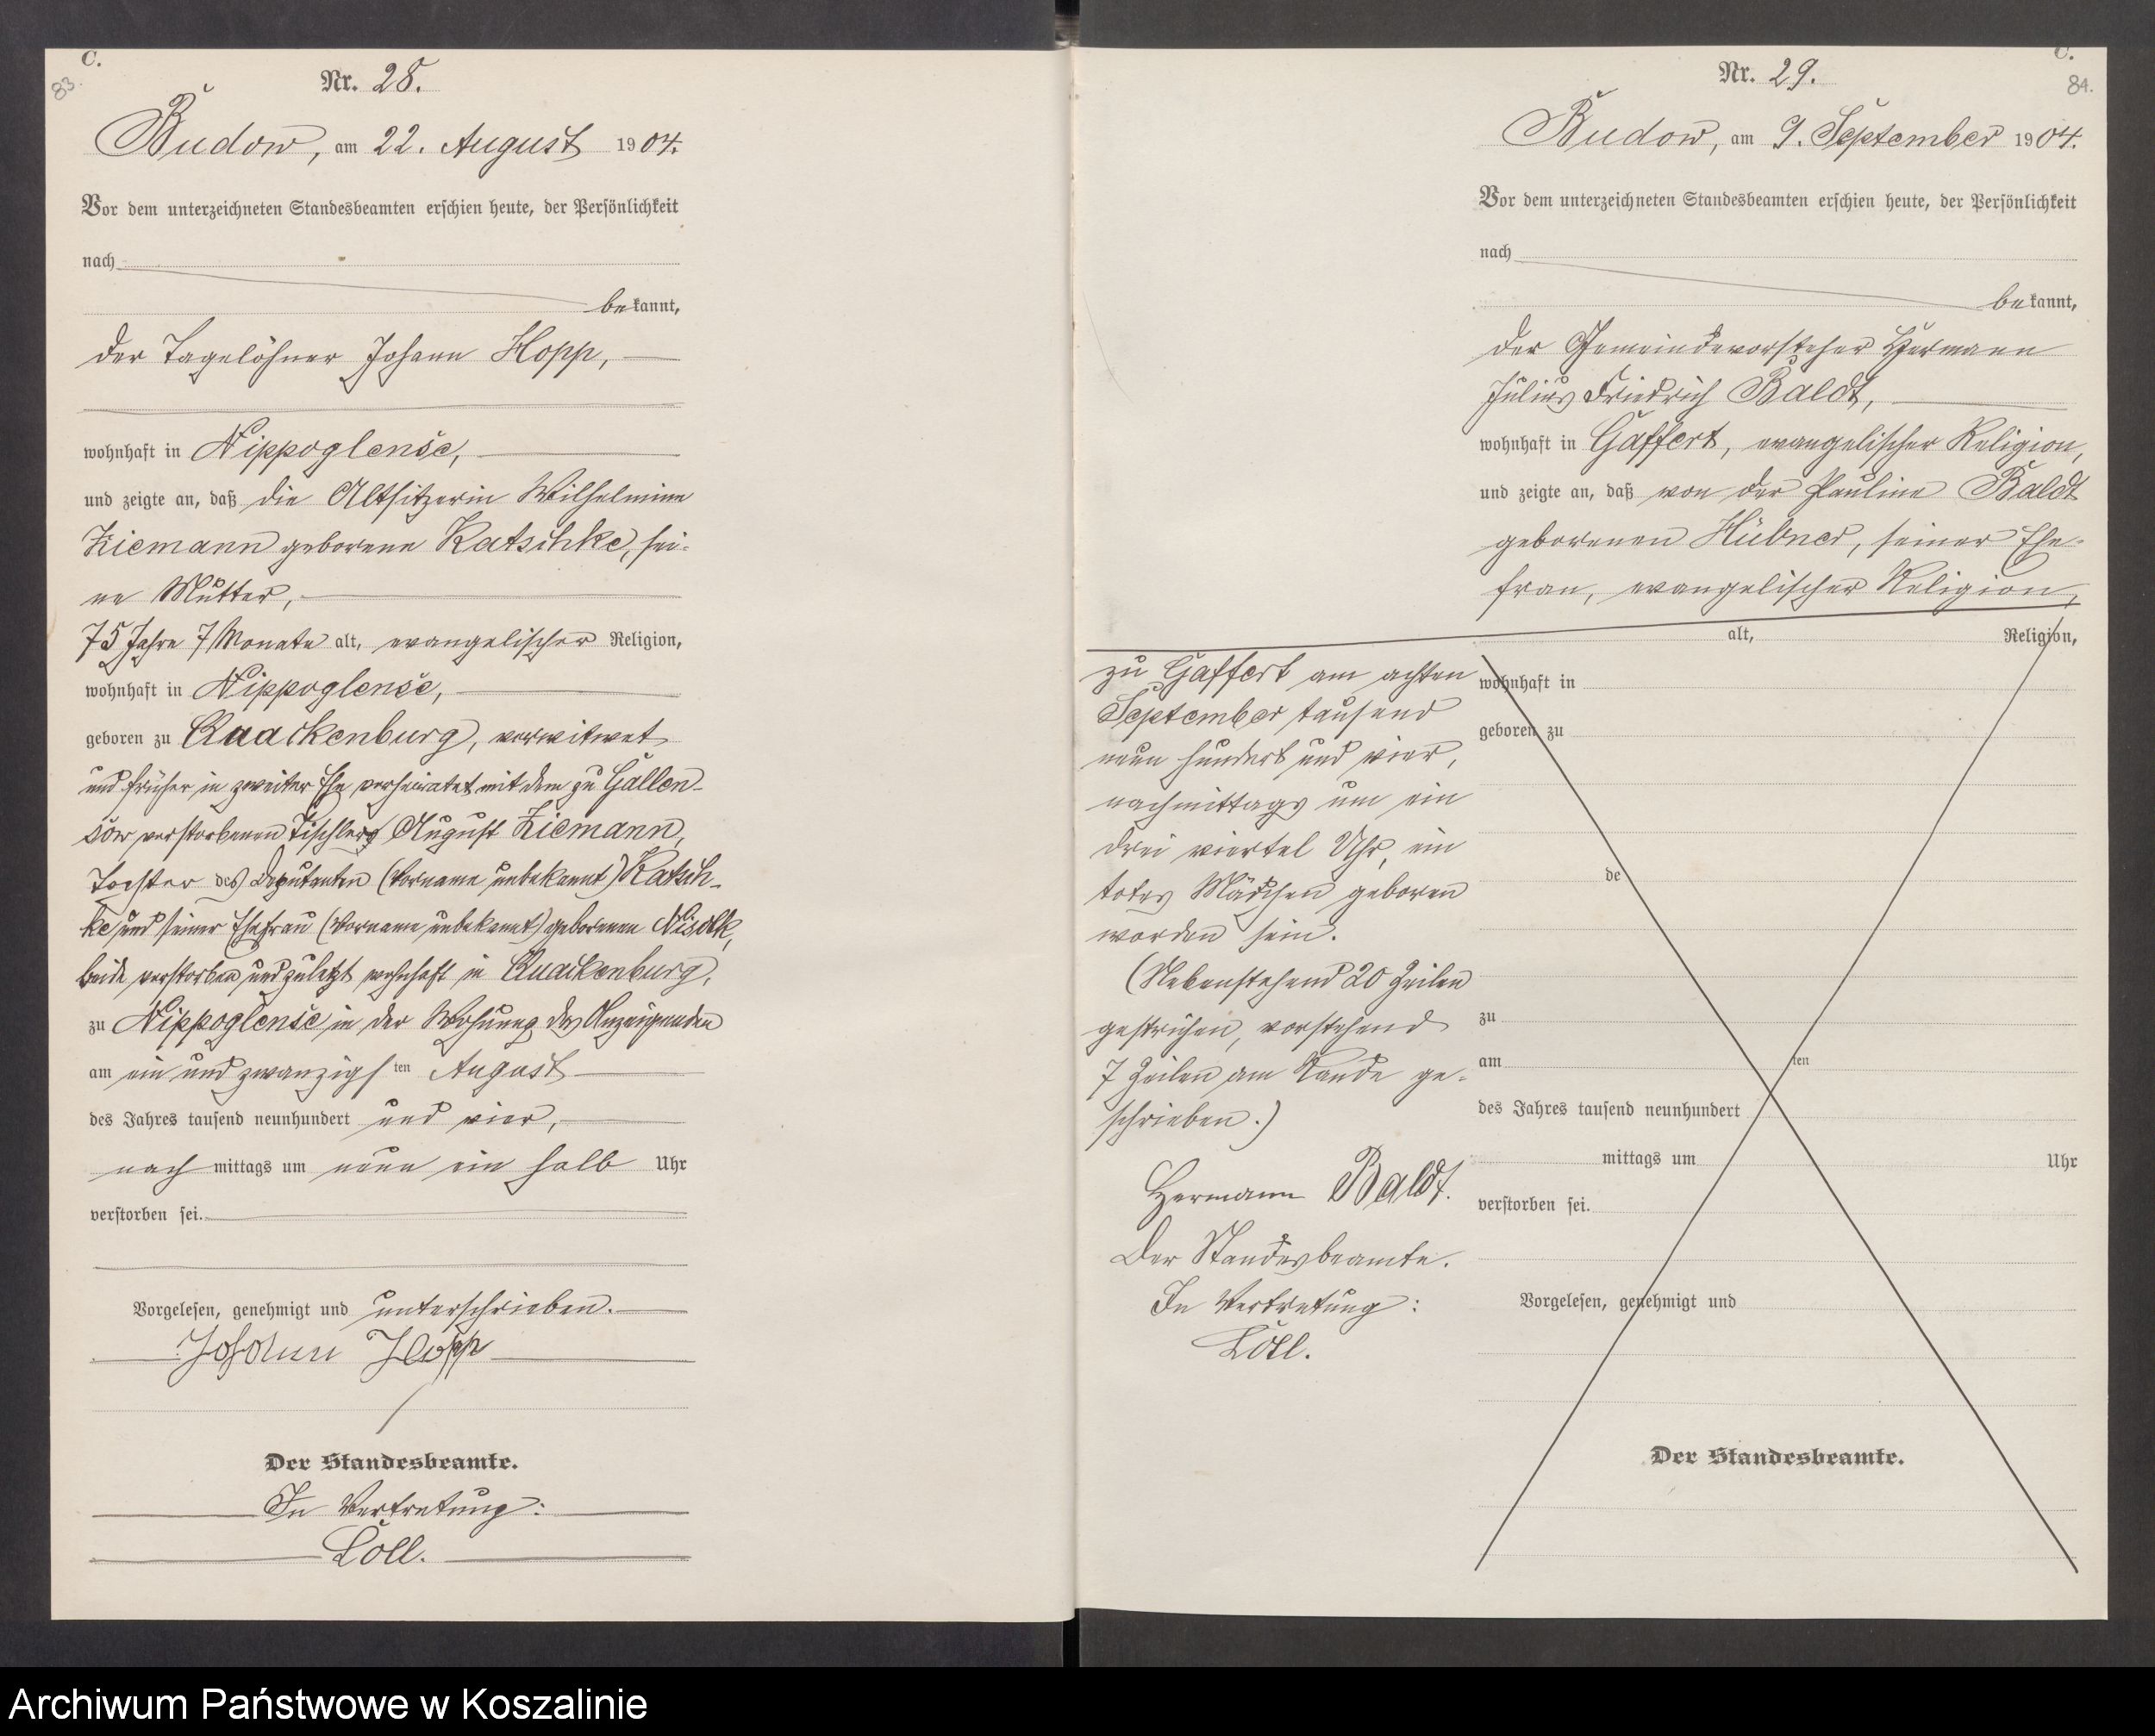 C.
83.
Nr. 28.
Budow, am 22. August 1904.
Vor dem unterzeichneten Standesbeamten erschien heute, der Persönlichkeit
nach
bekannt,
der Tagelöhner Johann Hopp,
wohnhaft in Nippoglense,
und zeigte an, daß die Altsitzerin Wilhelmine
Ziemann geborene Katschke, sei-
ne Mutter,
75 Jahre 7 Monate alt, evangelischer Religion,
wohnhaft in Nippoglense,
geboren zu Quackenburg, verwitwet
und früher in zweiter Ehe verheiratet mit dem zu Gallen-
sow verstorbenen Tischler August Ziemann,
Tochter des Deputanten (Vorname unbekannt) Katsch-
ke und seiner Ehefrau (Vorname unbekannt) geborenen
beide verstorben und zuletzt wohnhaft in Quackenburg,
zu Nippoglense in der Wohnung des Anzeigenden
am ein und zwanzigsten August
des Jahres tausend neunhundert und vier,
nachmittags um neun ein halb Uhr
verstorben sei.
Vorgelesen, genehmigt und unterschrieben.
Johann Hopp
Der Standesbeamte.
In Vertretung:
Löll.
C.
84.
Nr. 29.
Budow, am 9. September 1904.
Vor dem unterzeichneten Standesbeamten erschien heute, der Persönlichkeit
nach
bekannt,
der Gemeindevorsteher Hermann
Julius Friedrich Baldt,
wohnhaft in Gaffert, evangelischer Religion,
und zeigte an, daß von der Pauline Baldt
geborenen Hübner, seiner Ehe-
frau, evangelischer Religion,
zu Gaffert am achten
September tausend
neun hundert und vier,
nachmittags um ein
drei viertel Uhr, ein
totes Mädchen geboren
worden sein.
(Nebenstehend 20 Zeilen
gestrichen, vorstehend
7 Zeilen am Rande ge-
schrieben.)
Hermann Baldt.
Der Standesbeamte.
In Vertretung:
Löll.
alt, Religion,
wohnhaft in
geboren zu
de
zu
am ten
des Jahres tausend neunhundert
mittags um Uhr
verstorben sei.
Vorgelesen, genehmigt und
Der Standesbeamte.
Archiwum Państwowe w Koszalinie